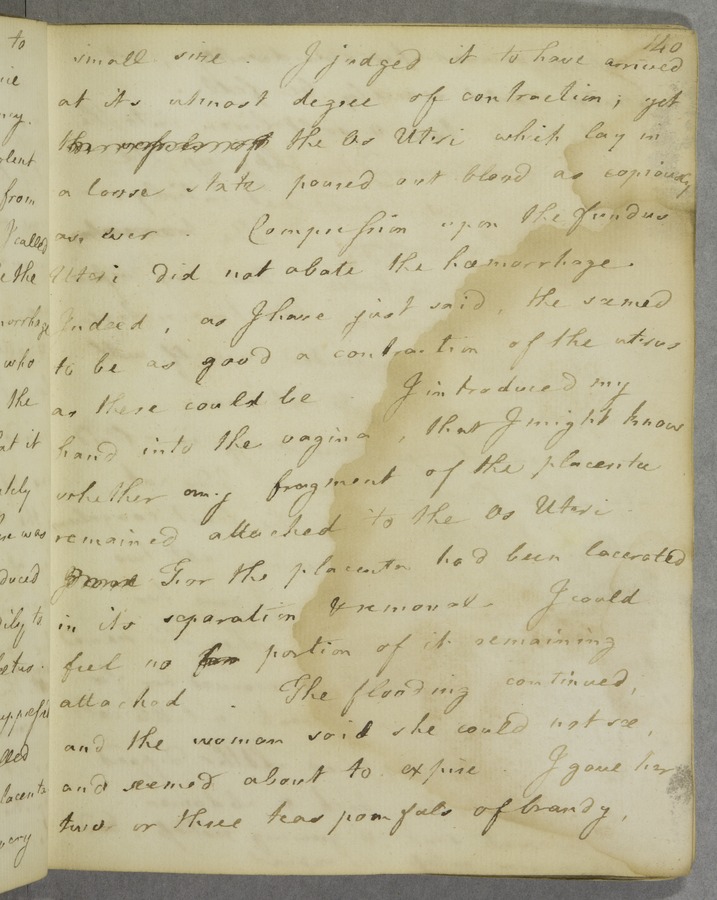 140
small size. I judged it to have arrived
at its utmost degree of contraction; yet
the Os Uteri which lay in
a loose state poured out blood as copiously
as ever. Compression upon the fundus
Uteri did not abate the hæmorrhage.
Indeed, as I have just said, the seemed
to be as good a contraction of the uterus
as there could be. I introduced my
hand into the vagina, that I might know
whether any fragment of the placenta
remained attached to the Os Uteri.
For the placenta had been lacerated
in its separation & removal. I could
feel no portion of it remaining
attached. The flooding continued,
and the woman said she could not see,
and seemed about to expire. I gave her
two or three teaspoonfuls of brandy,
to
from
I called
the
who
the
at it
was
duced
ily to
placenta